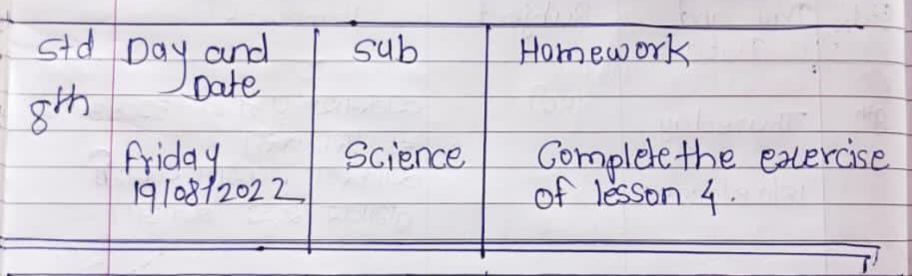 Std Day and Date Sub Homework
8th
Friday 19/08/2022 Science Complete the exercise of lesson 4.